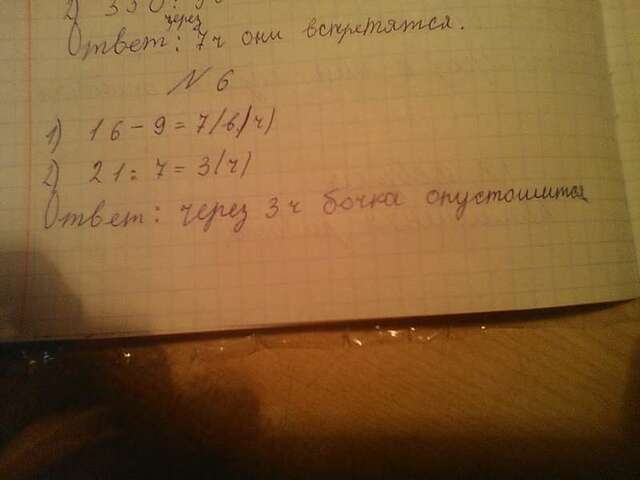 2) 350:
через
Ответ: 7ч они встретятся.
N 6
1) 16 - 9 = 7(в/ч)
2) 21 : 7 = 3(ч)
Ответ: через 3 ч бочка опустошится